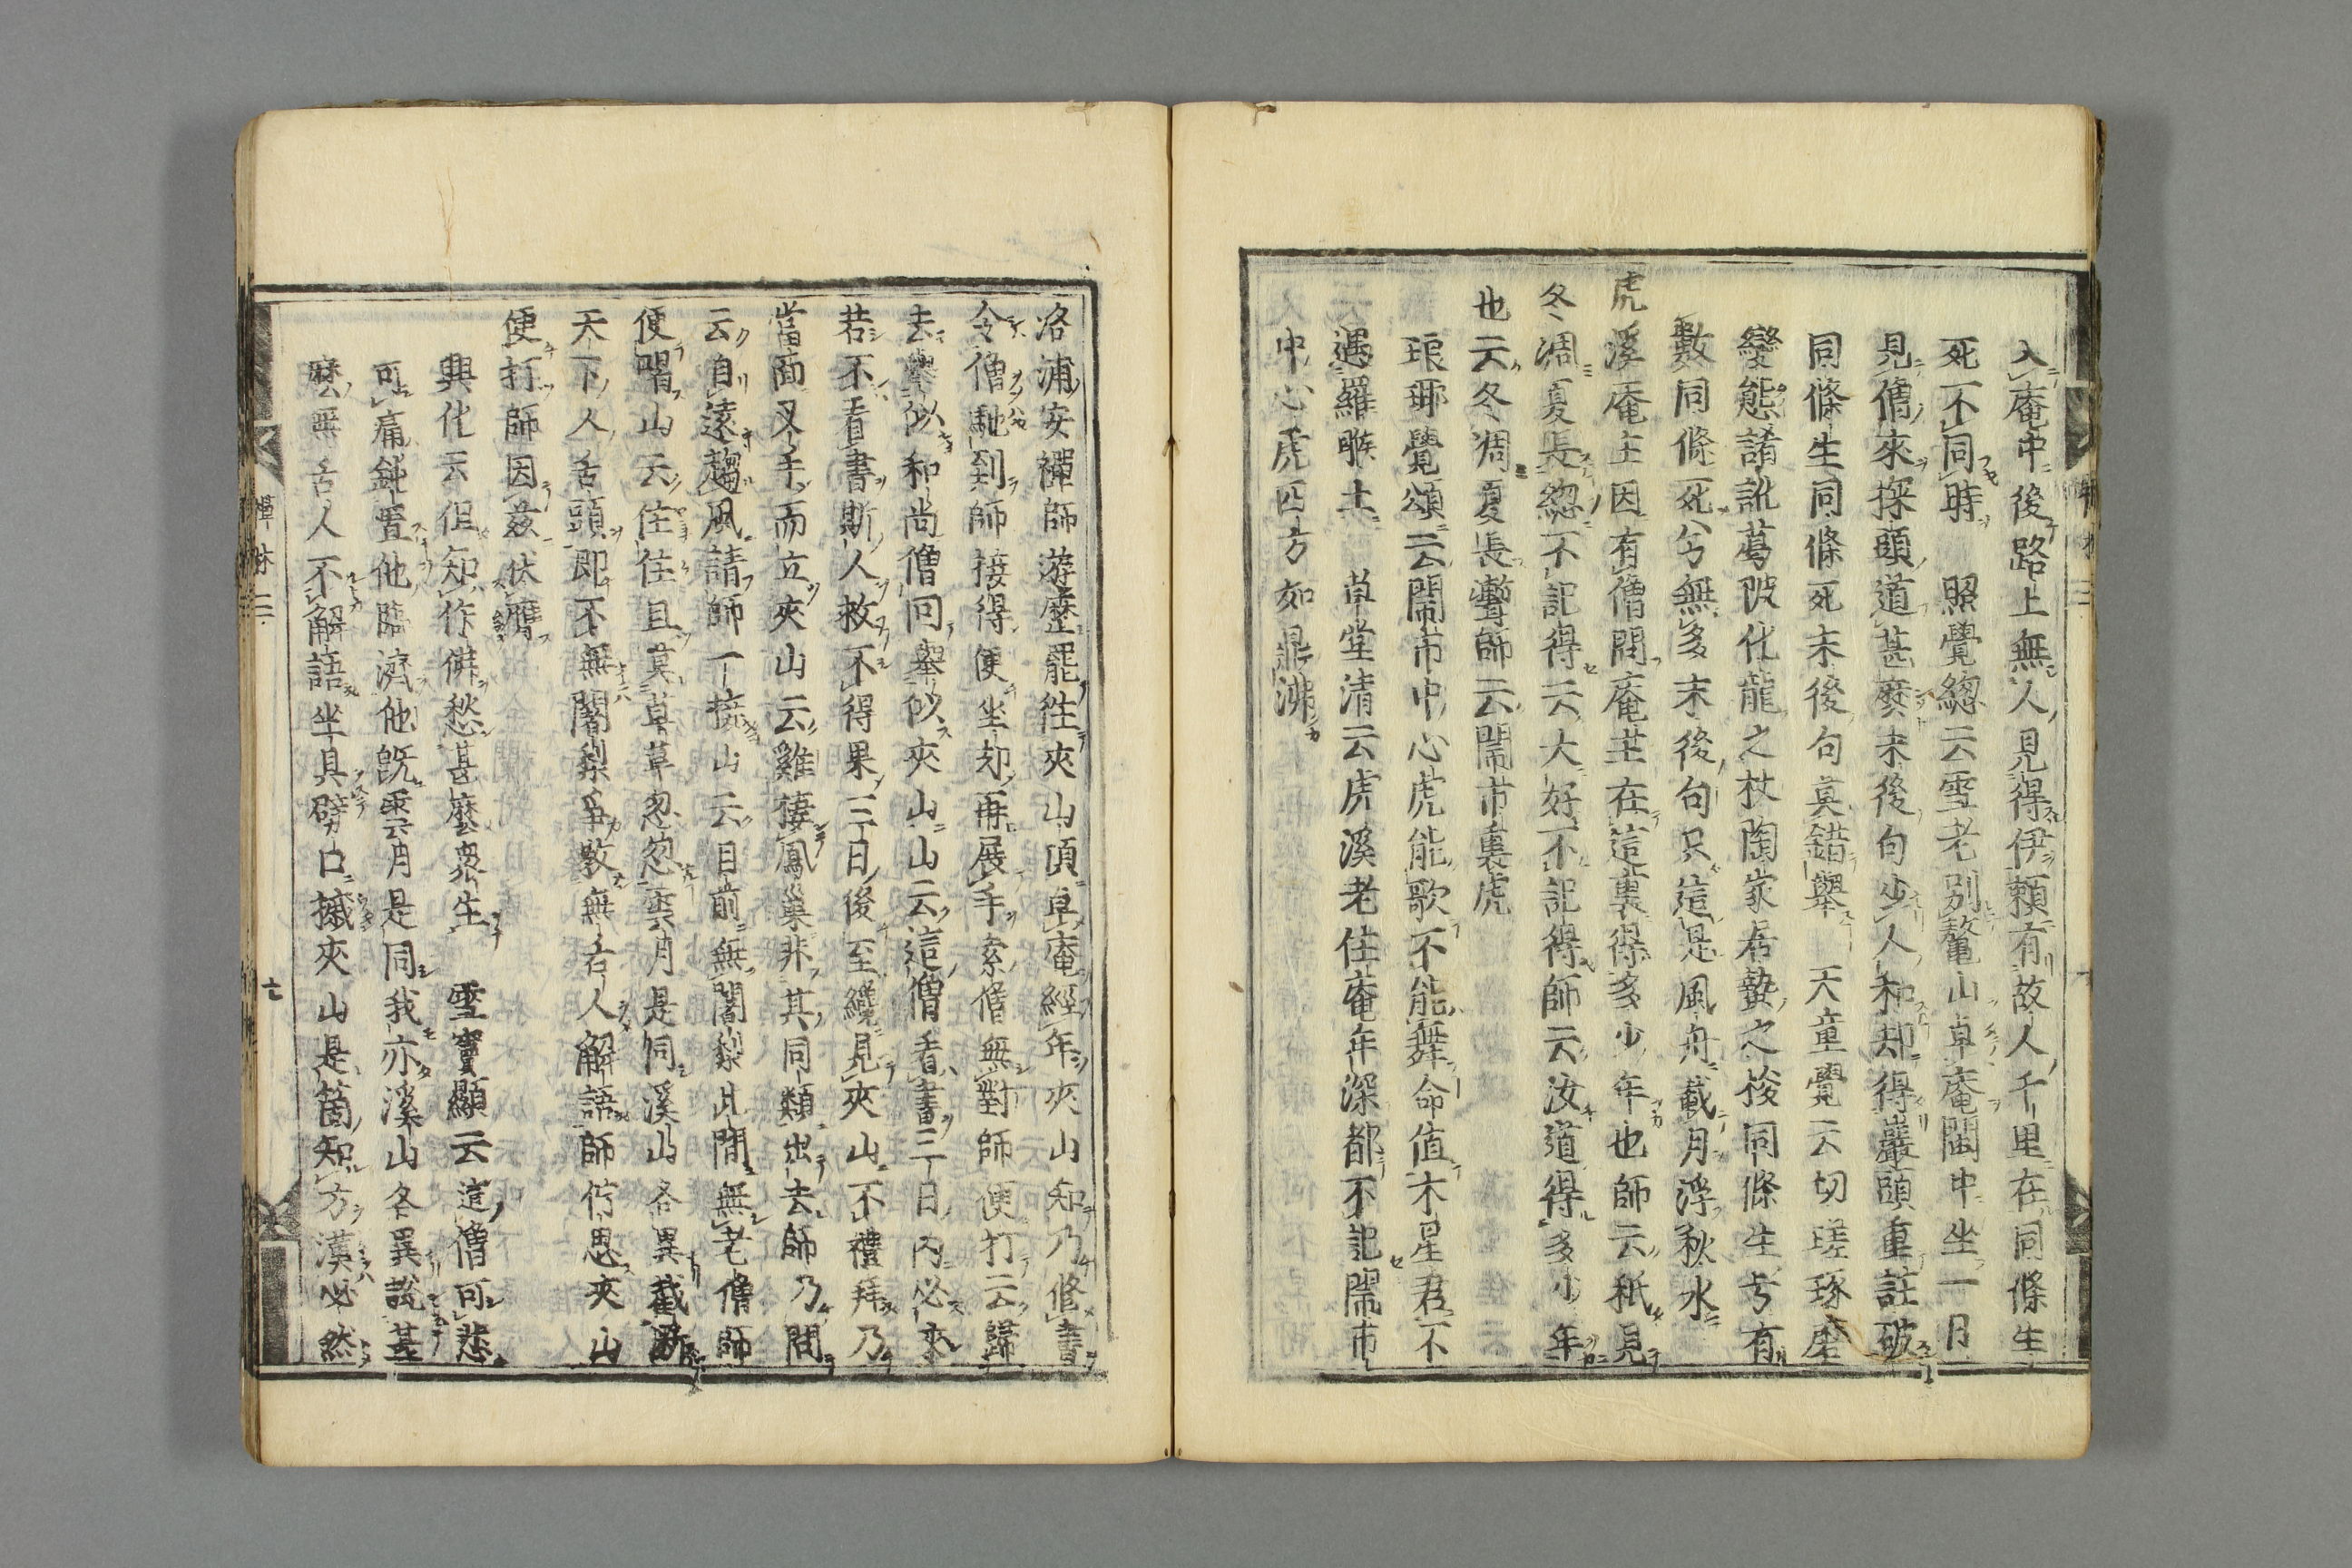 入庵中後路上無人見得伊賴有故人千里在同條生
死不同時　照覺總云雪老別鼇山卓庵閩中坐一月
見僧來探頭道甚麼末後句少人和却得巖頭重註破
同條生同條死末後句莫錯舉　天童覺云切瑳琢磨
變態諸訛葛陂化龍之杖陶家居蟄之梭同條生兮有
數同條死兮無多末後句只這是風舟載月浮秋水
虎溪庵主因有僧問庵主在這裏得多少年也師云秖見
冬凋夏長緫不記得云大好不記得師云汝道得多少年
也云冬凋夏長聻師云閙市裏虎
琅琊覺頌云閙市中心虎能歌不能舞命值木星君不
遇羅睺土　草堂清云虎溪老住庵年深都不記閙市
中心虎四方如鼎沸
洛浦安禪師游歷罷徃夾山頂卓庵經年夾山知乃修書
令僧馳到師接得便坐却再展手索僧無對師便打云歸
去舉似和尚僧回舉似夾山山云這僧看書三日內必來
若不看書斯人救不得果三日後至纔見夾山不禮拜乃
當面叉手而立夾山云雞棲鳳巢非其同類出去師乃問
云自遠趨風請師一接山云目前無闍梨此間無老僧師
便喝山云住住且莫草草忽忽雲月是同溪山各異截斷
天下人舌頭即不無闍梨爭敎無舌人解語師佇思夾山
便打師因茲伏膺
興化云但知作佛愁甚麼衆生　雪竇顯云這僧可悲
可痛鈍置他臨濟他旣雲月是同我亦溪山各異說甚
麼無舌人不解語坐具劈口摵夾山是箇知方漢必然
禪林三
七